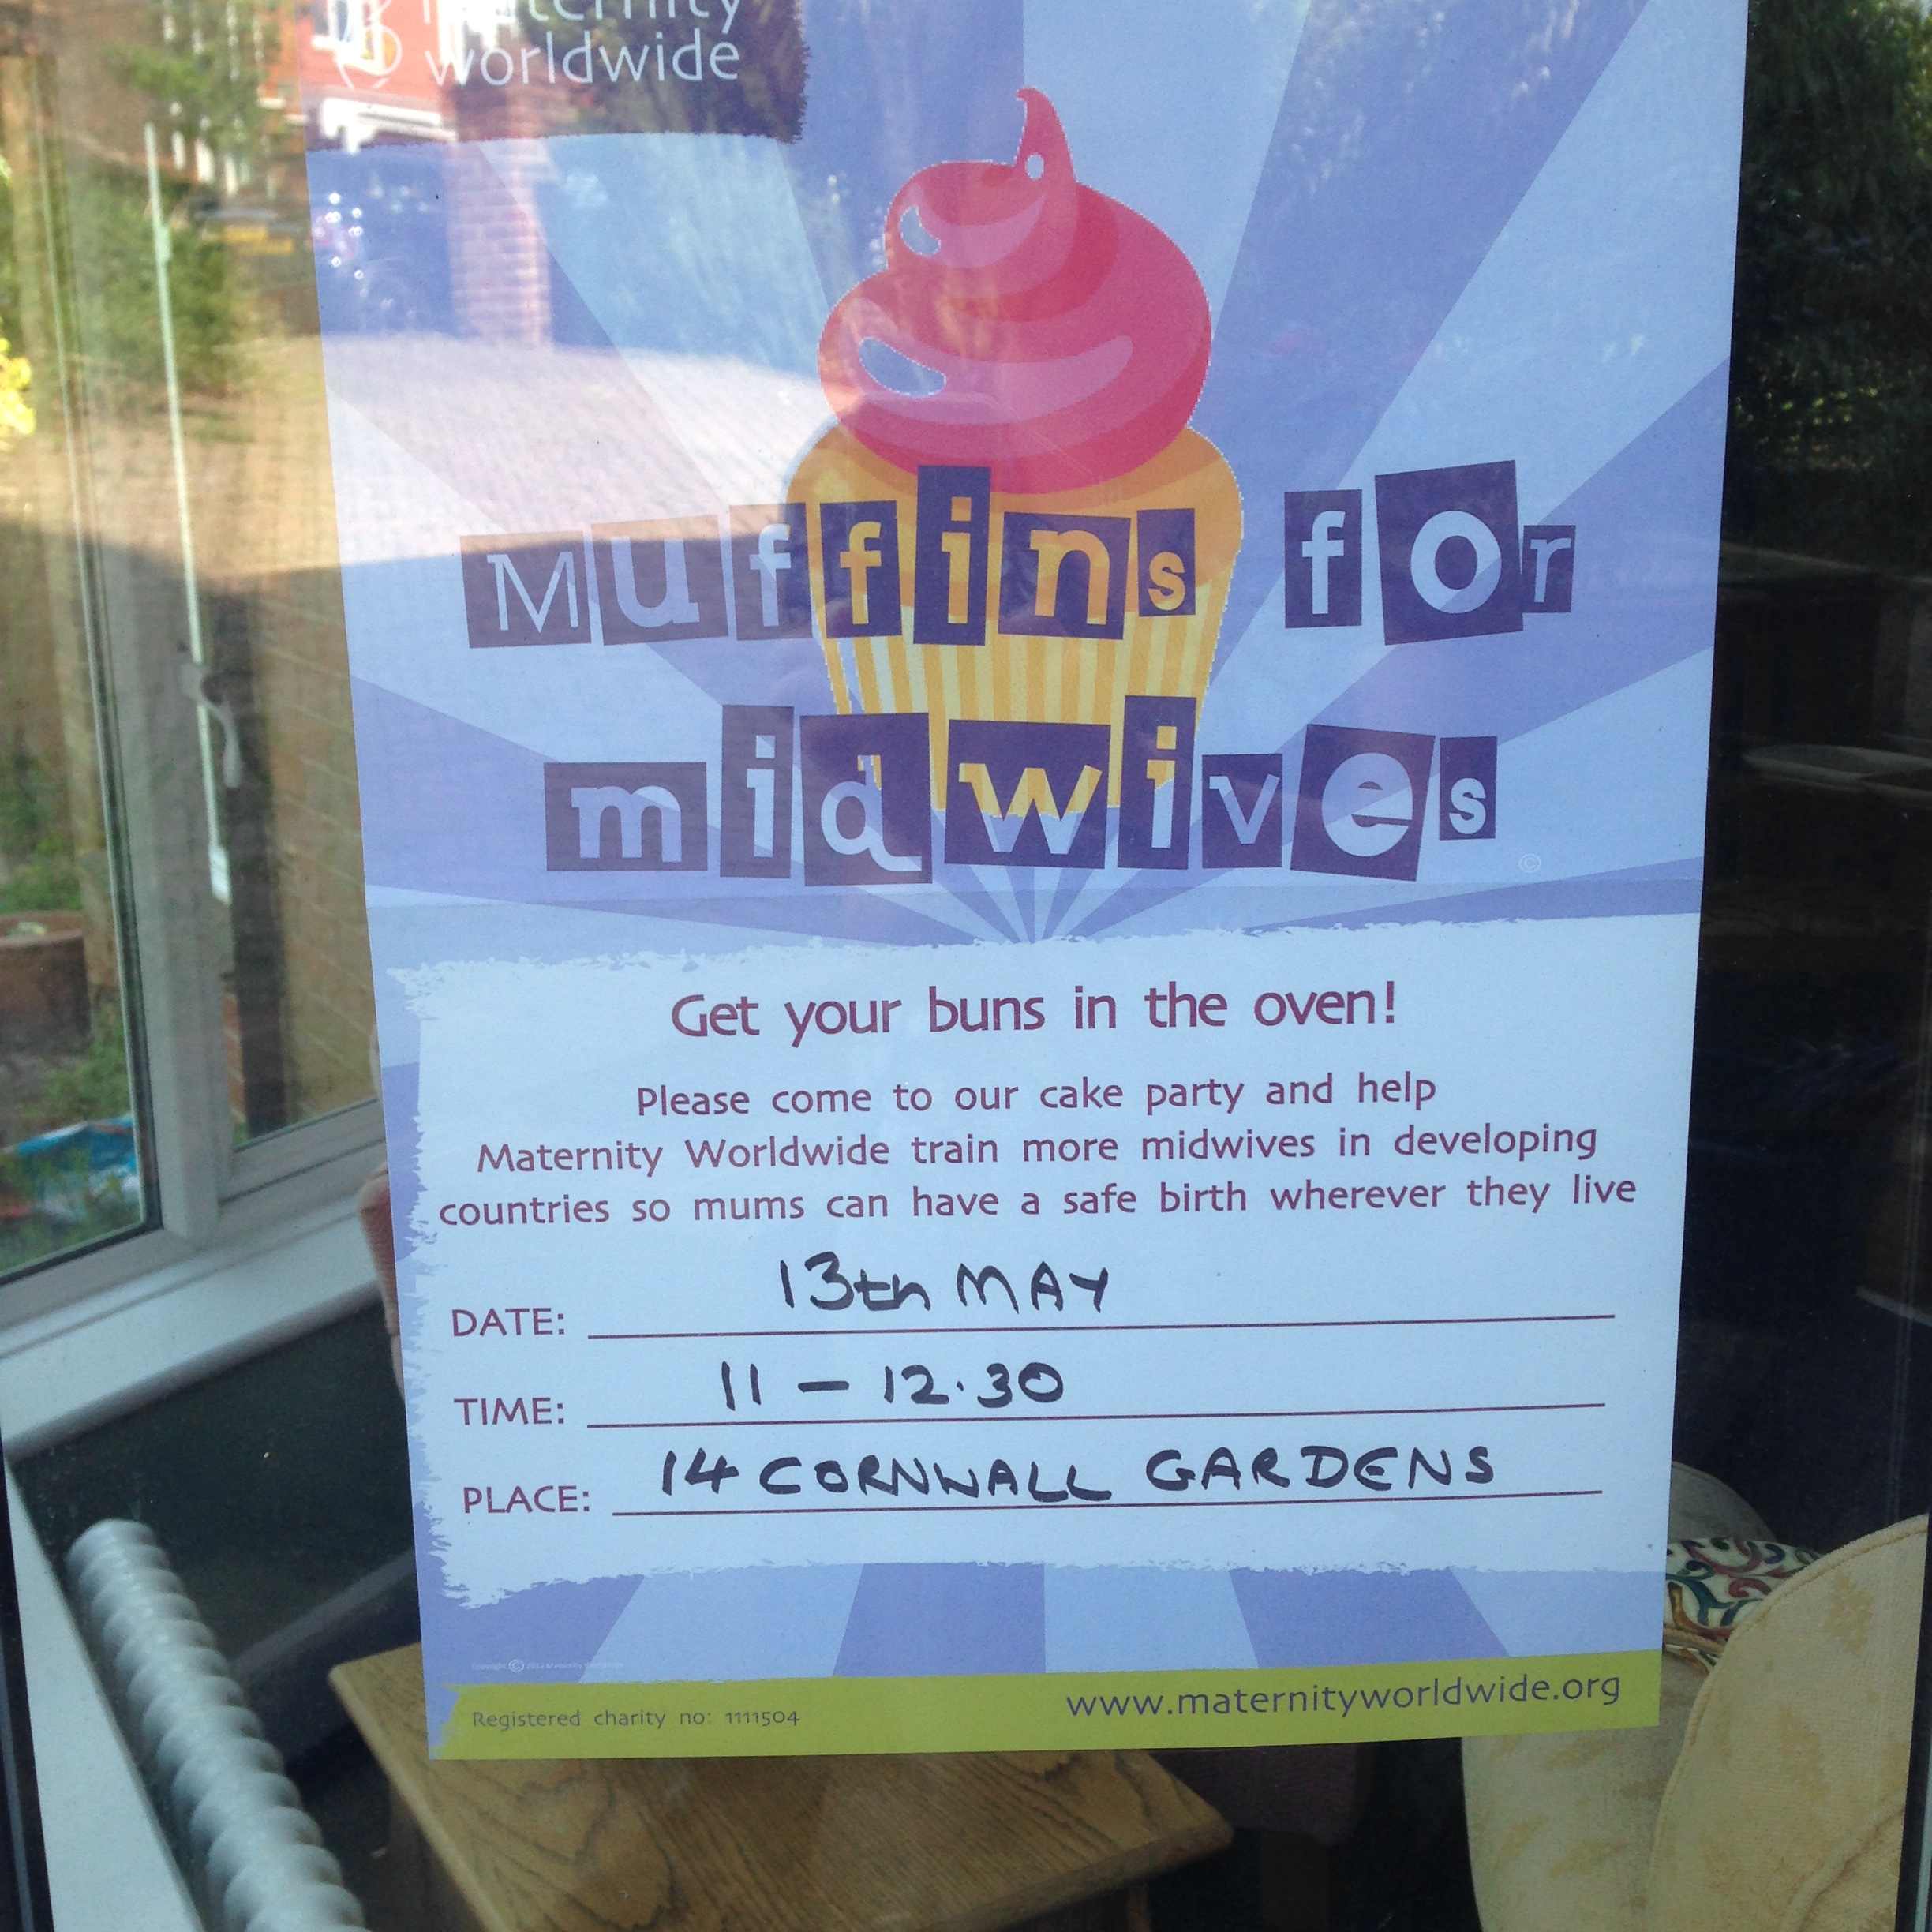 worldwide
Muffins for
midwives
©
Get your buns in the oven!
Please come to our cake party and help
Maternity Worldwide train more midwives in developing
countries so mums can have a safe birth wherever they live
DATE: 13th MAY
TIME: 11 – 12.30
PLACE: 14 CORNWALL GARDENS
Registered charity no: 1111504
www.maternityworldwide.org